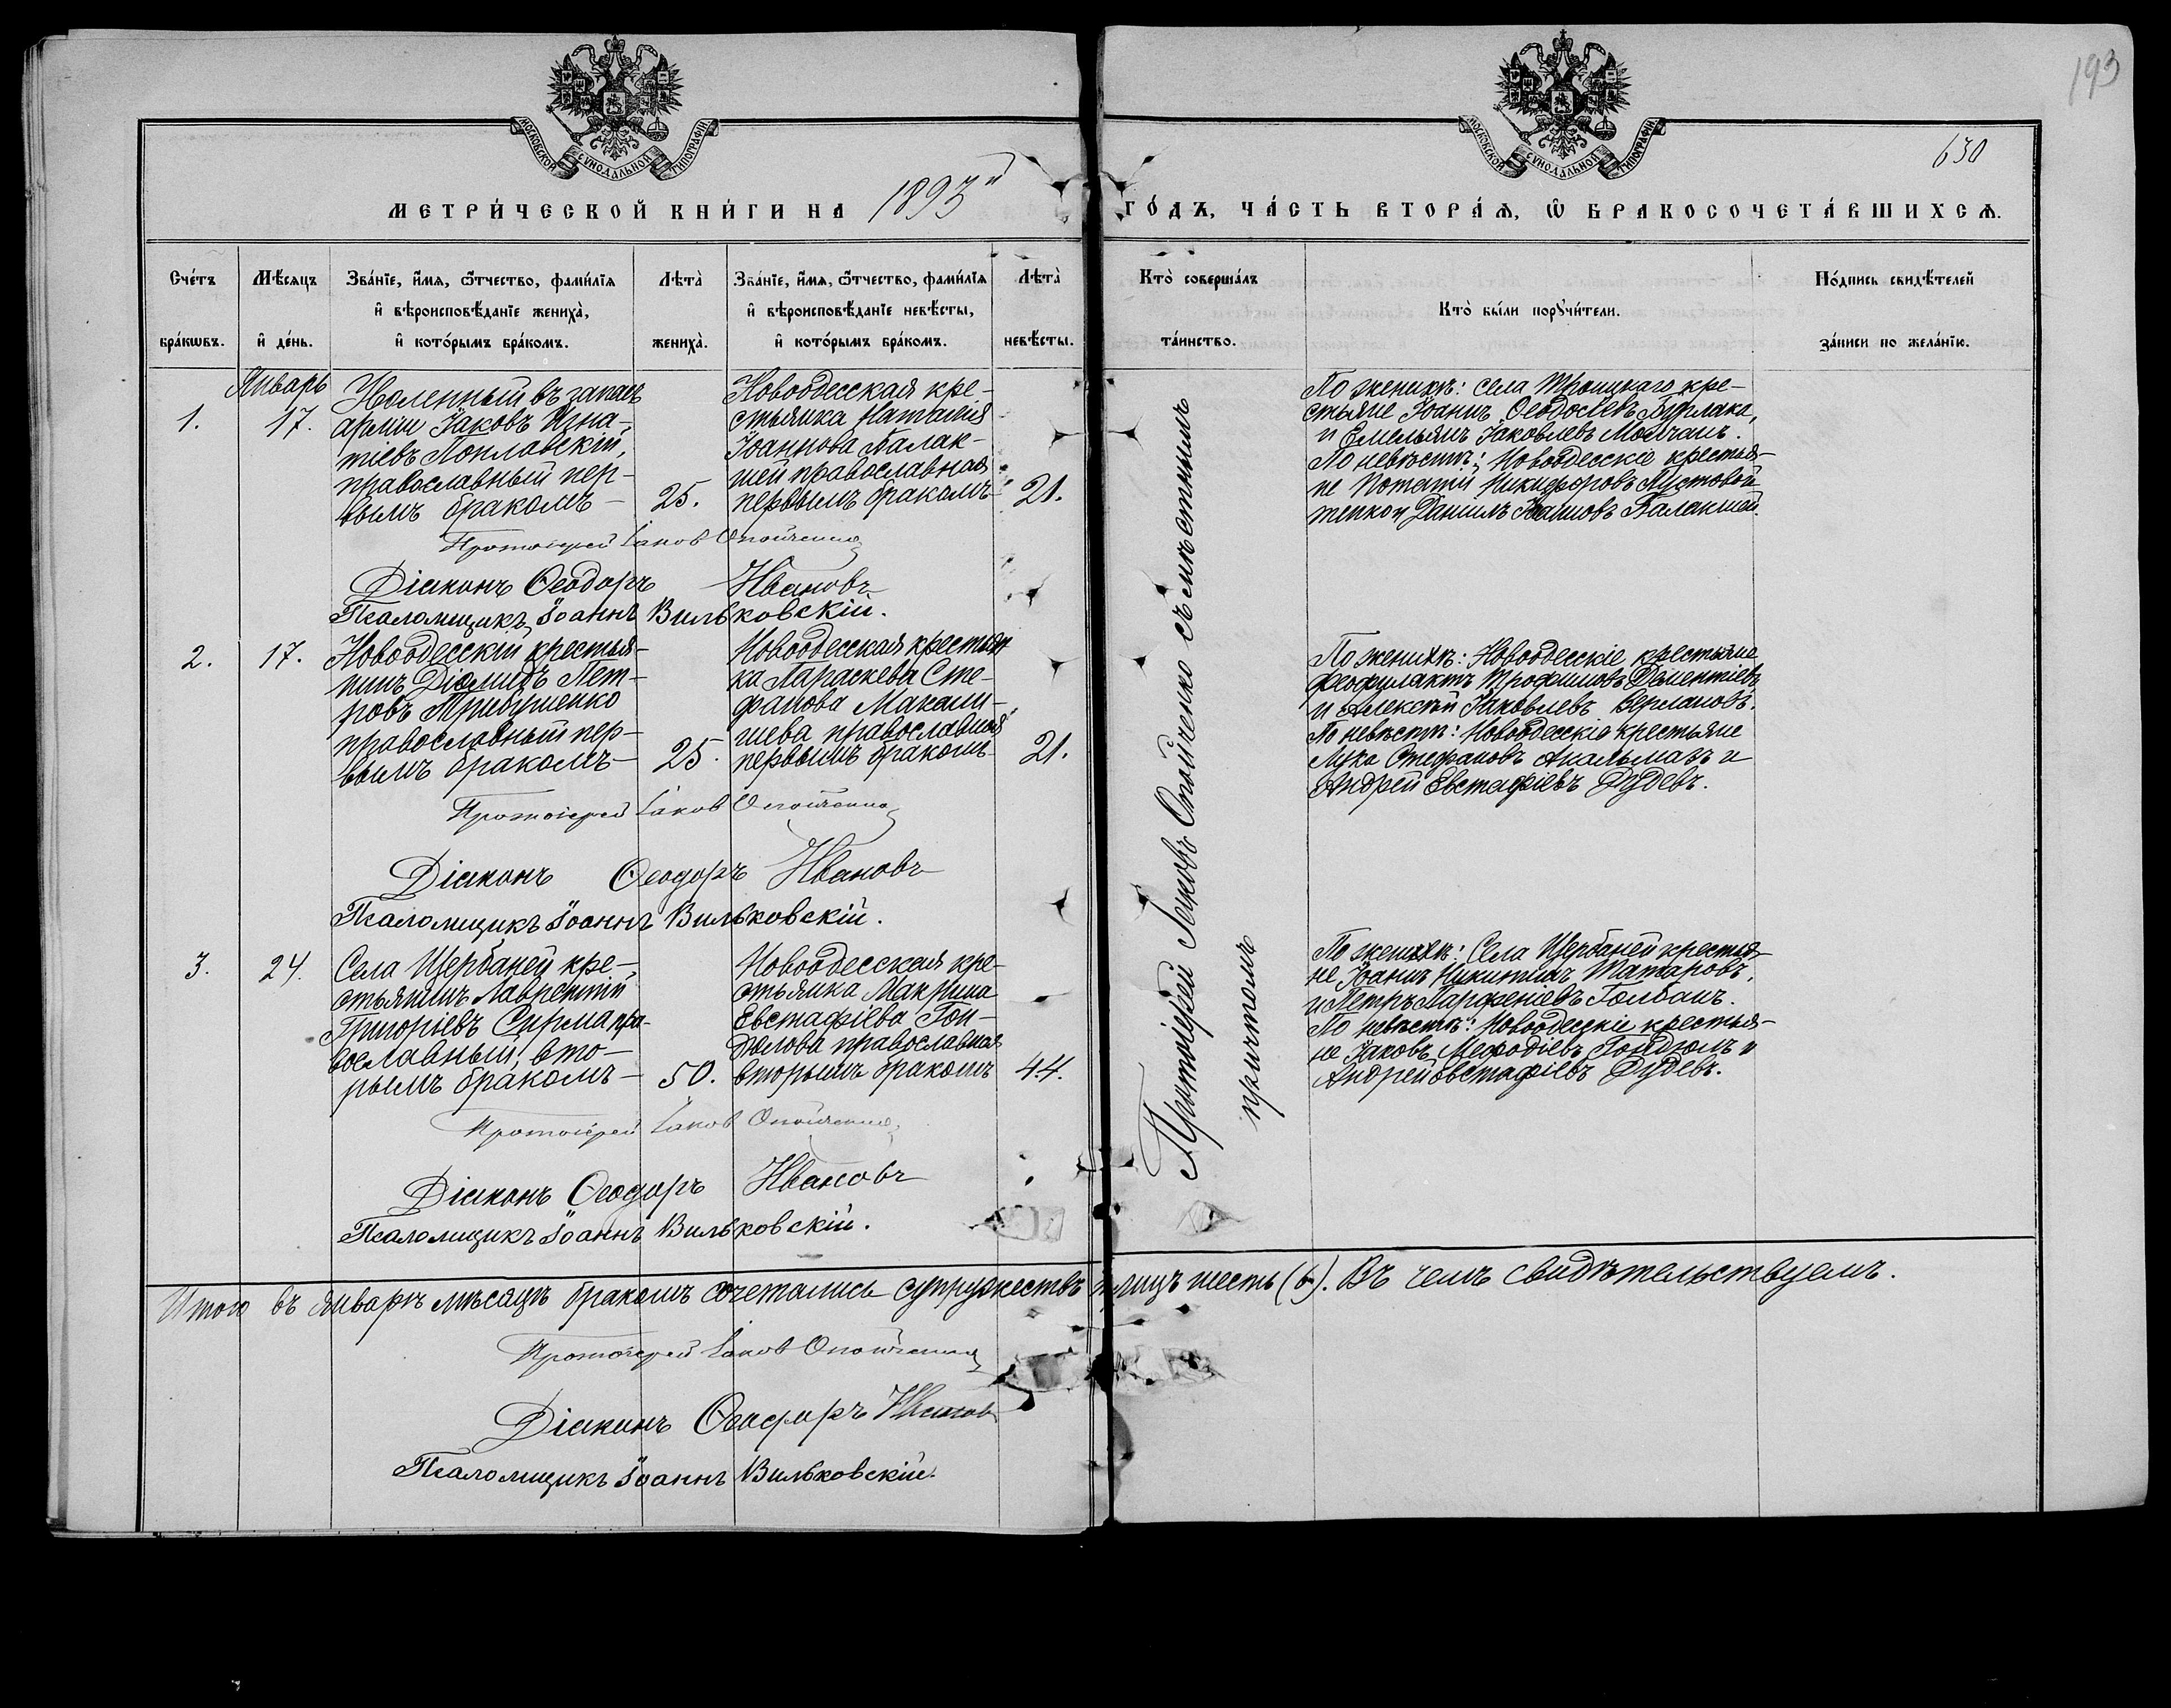 193
630
МОСКОВСКОЙ СѴНОДАЛЬНОЙ ТИПОГРАФІИ.
МОСКОВСКОЙ СѴНОДАЛЬНОЙ ТИПОГРАФІИ.
МЕТРИ́ЧЕСКОЙ КНИ́ГИ НА 1893й ГО́ДЪ, ЧА́СТЬ ВТОРА́Ѧ, Ѽ БРАКОСОЧЕТА́ВШИХСѦ.
Сче́тъ бра́кѡвъ.
Мѣ́сяцъ и҆ де́нь.
Зва́нїе, и҆́мѧ, ѻ҆́тчество, фами́лїѧ
и҆ вѣроисповѣ́данїе жениха̀,
и҆ кото́рымъ бра́комъ.
Лѣта̀ жениха̀.
Зва́нїе, и҆́мѧ, ѻ҆́тчество, фами́лїѧ
и҆ вѣроисповѣ́данїе невѣ́сты,
и҆ кото́рымъ бра́комъ.
Лѣта̀ невѣ́сты.
Кто̀ соверша́лъ та́инство.
Кто̀ бы́ли порꙋчи́тели.
По́дпись свидѣ́телей за́писи по жела́нїю.
Январь
1.
17.
Уволенный въ запасъ
арміи Іаковъ Игна-
тіевъ Поплавскій,
православный пер-
вымъ бракомъ-
25.
Новоодесская кре-
стьянка Наталія
Іоаннова Балак-
шей православная
первымъ бракомъ-
21.
По женихѣ: села Троицкаго кре-
стьяне Іоаннъ Ѳеодосіевъ Бурлака,
и Емельянъ Іаковлевъ Молчанъ.
По невѣстѣ: Новоодесскіе крестья-
не Потапій Никифоровъ Пустовой-
тенко и Даніилъ Іоанновъ Балакшей.
Протоіерей Іаковъ Опойченко
Діаконъ Ѳеодоръ Ивановъ
Псаломщикъ Іоаннъ Вильковскій.
2.
17.
Новоодесскій крестья-
нинъ Діомидъ Пет-
ровъ Трибушенко
православный пер-
вымъ бракомъ-
25.
Новоодесская крестьян
ка Параскева Сте-
фанова Макали-
шева православная
первымъ бракомъ-
21.
По женихѣ: Новоодесскіе крестьяне
Феофилактъ Трофимовъ Дементіевъ
и Алексѣй Іаковлевъ Верлановъ.
По невѣстѣ: Новоодесскіе крестьяне
Лука Стефановъ Акальмазъ и
Андрей Евстафіевъ Рудевъ.
Протоіерей Іаковъ Опойченко
Діаконъ Ѳеодоръ Ивановъ
Псаломщикъ Іоаннъ Вильковскій.
3.
24.
Села Щербаней кре-
стьянинъ Лаврентій
Григоріевъ Сирма пра-
вославный, вто-
рымъ бракомъ-
50.
Новоодесская кре-
стьянка Макрина
Евстафіева Гон-
дюлова православная
вторымъ бракомъ
44.
По женихѣ: Села Щербаней крестья-
не Іоаннъ Никитинъ Татаровъ,
и Петръ Парфеніевъ Голбанъ.
По невѣстѣ: Новоодесскіе крестья-
не Іаковъ Меѳодіевъ Гондюлъ и
Андрей Евстафіевъ Рудевъ.
Протоіерей Іаковъ Опойченко
Діаконъ Ѳеодоръ Ивановъ
Псаломщикъ Іоаннъ Вильковскій.
Протоіерей Іаковъ Опойченко съ мѣстнымъ
причтомъ
Итого въ Январѣ мѣсяцѣ бракомъ сочетались супружествъ лицъ шесть (6). Въ чемъ свидѣтельствуемъ.
Протоіерей Іаковъ Опойченко
Діаконъ Ѳеодоръ Ивановъ
Псаломщикъ Іоаннъ Вильковскій.